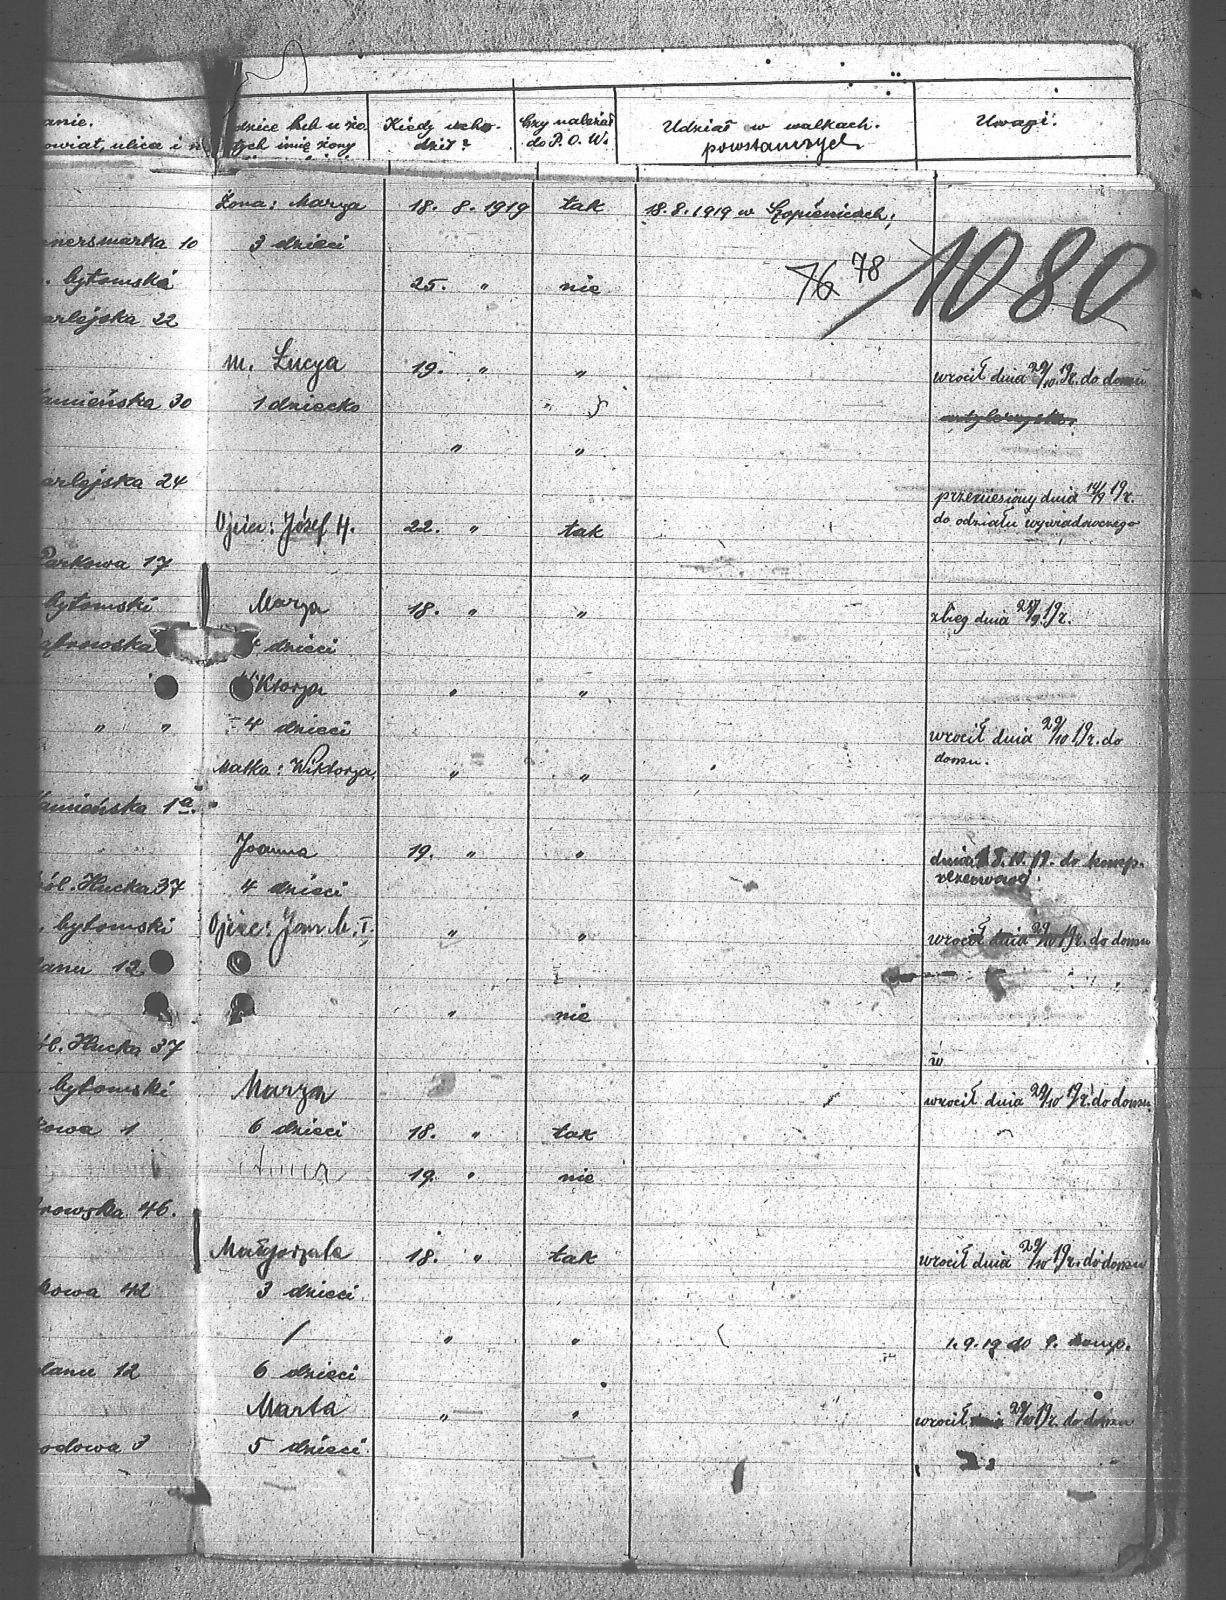 anie.
owiat, ulica i n
dzice lub u żo
tych imię żony
Kiedy ucho-
dził?
Czy należał
do P. O. W.
Udział w walkach
powstańczych
Uwagi.
Żona: Marya 18. 8. 1919 tak 18. 8. 1919 w Szopienicach,
nersmarka 10 3 dzieci
76 78 1080
. bytomska 25. " nie
arlejska 22
m. Łucya 19. " " wrócił dnia 29/10 19r. do domu
amieńska 30 1 dziecko "
" "
arlejska 24 przeniesiony dnia 14/9 19r.
do odziału wywiadowczego
Ojciec: Józef H. 22. " tak
Parkowa 17
bytomski Marya 18. " " zbieg dnia 28/9 19r.
dzieci
Wiktorya " "
" " 4 dzieci wrócił dnia 29/10 19r. do
domu.
Matka: Wiktorya " "
amieńska 1a.
Joanna 19. " " dnia 10. 19. do komp.
rezerwowej.
ól. Hucka 37 4 dzieci
. bytomski Ojciec: Jan M. I. " " wrócił dnia 29/10 19r. do domu
lanu 12
" nie
ól. Hucka 37
w
. bytomski Marya wrócił dnia 29/10 19r. do domu
kowa 1 6 dzieci 18. " tak
19. " nie
rowska 46.
Małgorzata 18. " tak wrócił dnia 29/10 19r. do domu
kowa 42 3 dzieci
/ " " 1. 9. 19 do 9. komp.
lanu 12 6 dzieci
Marta " " wrócił dnia 29/10 19r. do domu
odowa 3 5 dzieci